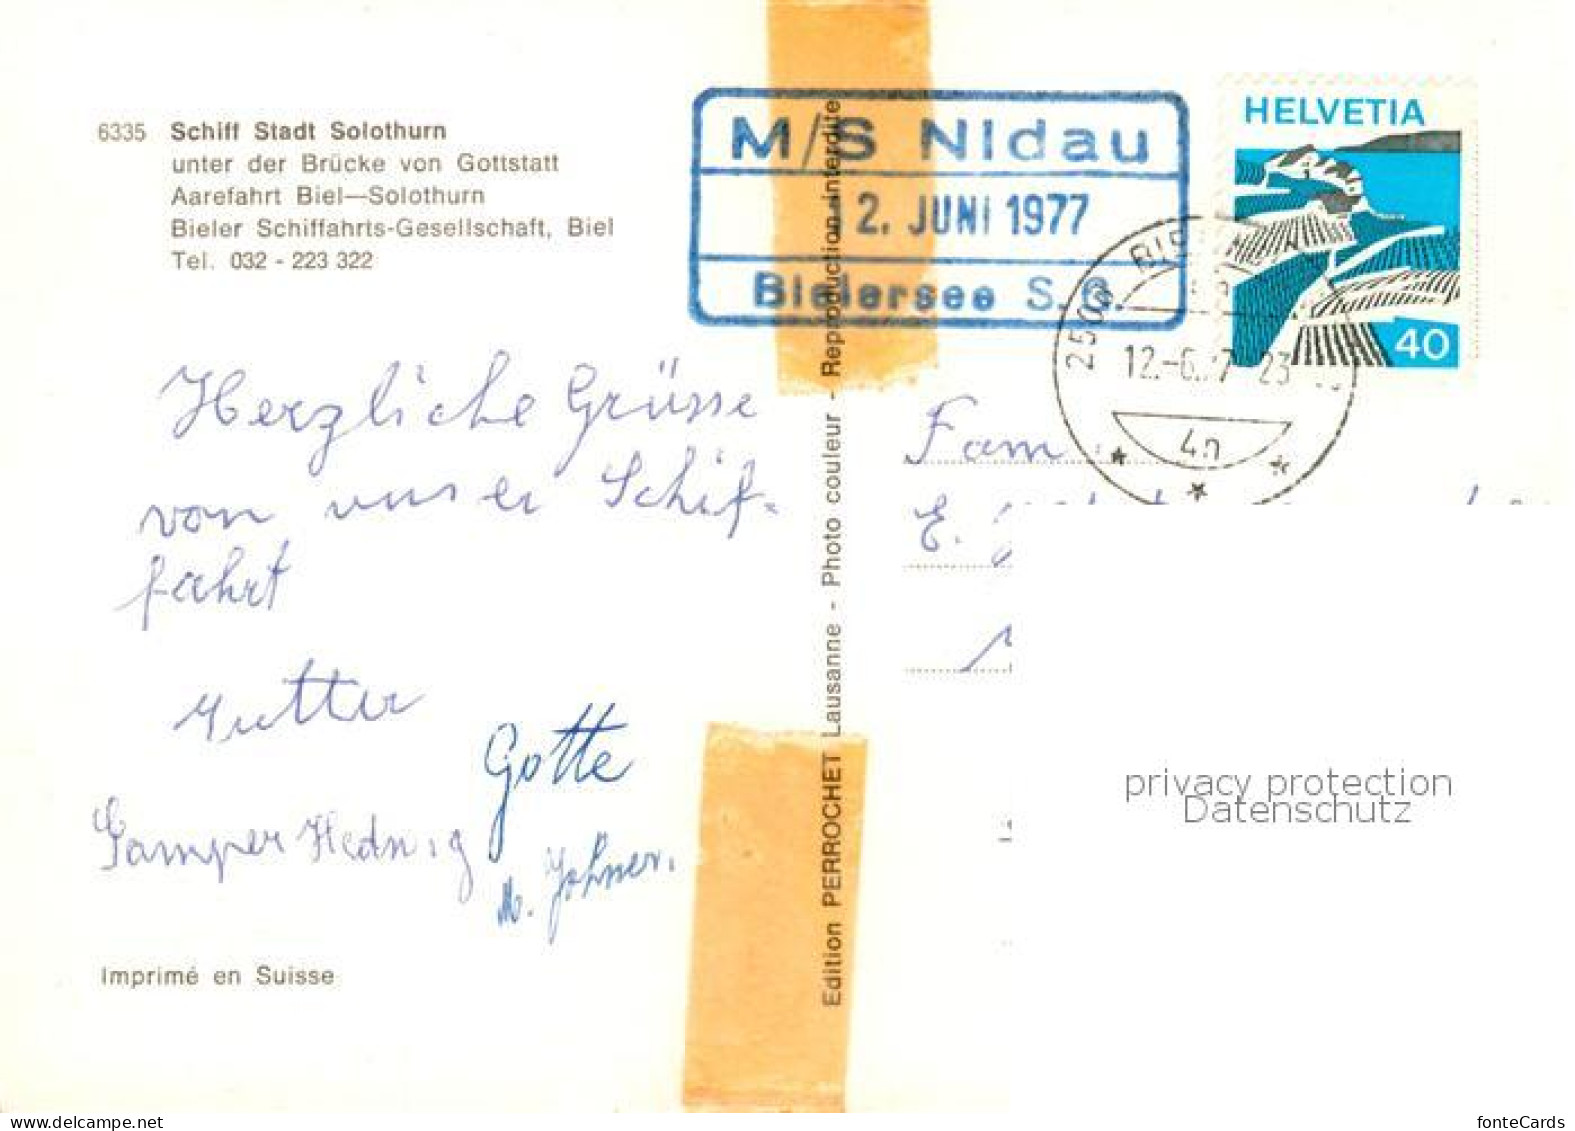 6335 Schiff Stadt Solothurn
unter der Brücke von Gottstatt
Aarefahrt Biel—Solothurn
Bieler Schiffahrts-Gesellschaft, Biel
Tel. 032 - 223 322
M/S Nidau
12. JUNI 1977
Bielersee S.G.
HELVETIA
40
2500 BIEL
12.-6.77-23
4n
Herzliche Grüsse
von unser Schif-
fahrt
Mutter
Gotte
Gamper Hedwig
M. Johner.
Imprimé en Suisse
Edition PERROCHET Lausanne - Photo couleur - Reproduction interdite
Fam.
E.
privacy protection
Datenschutz
fonteCards